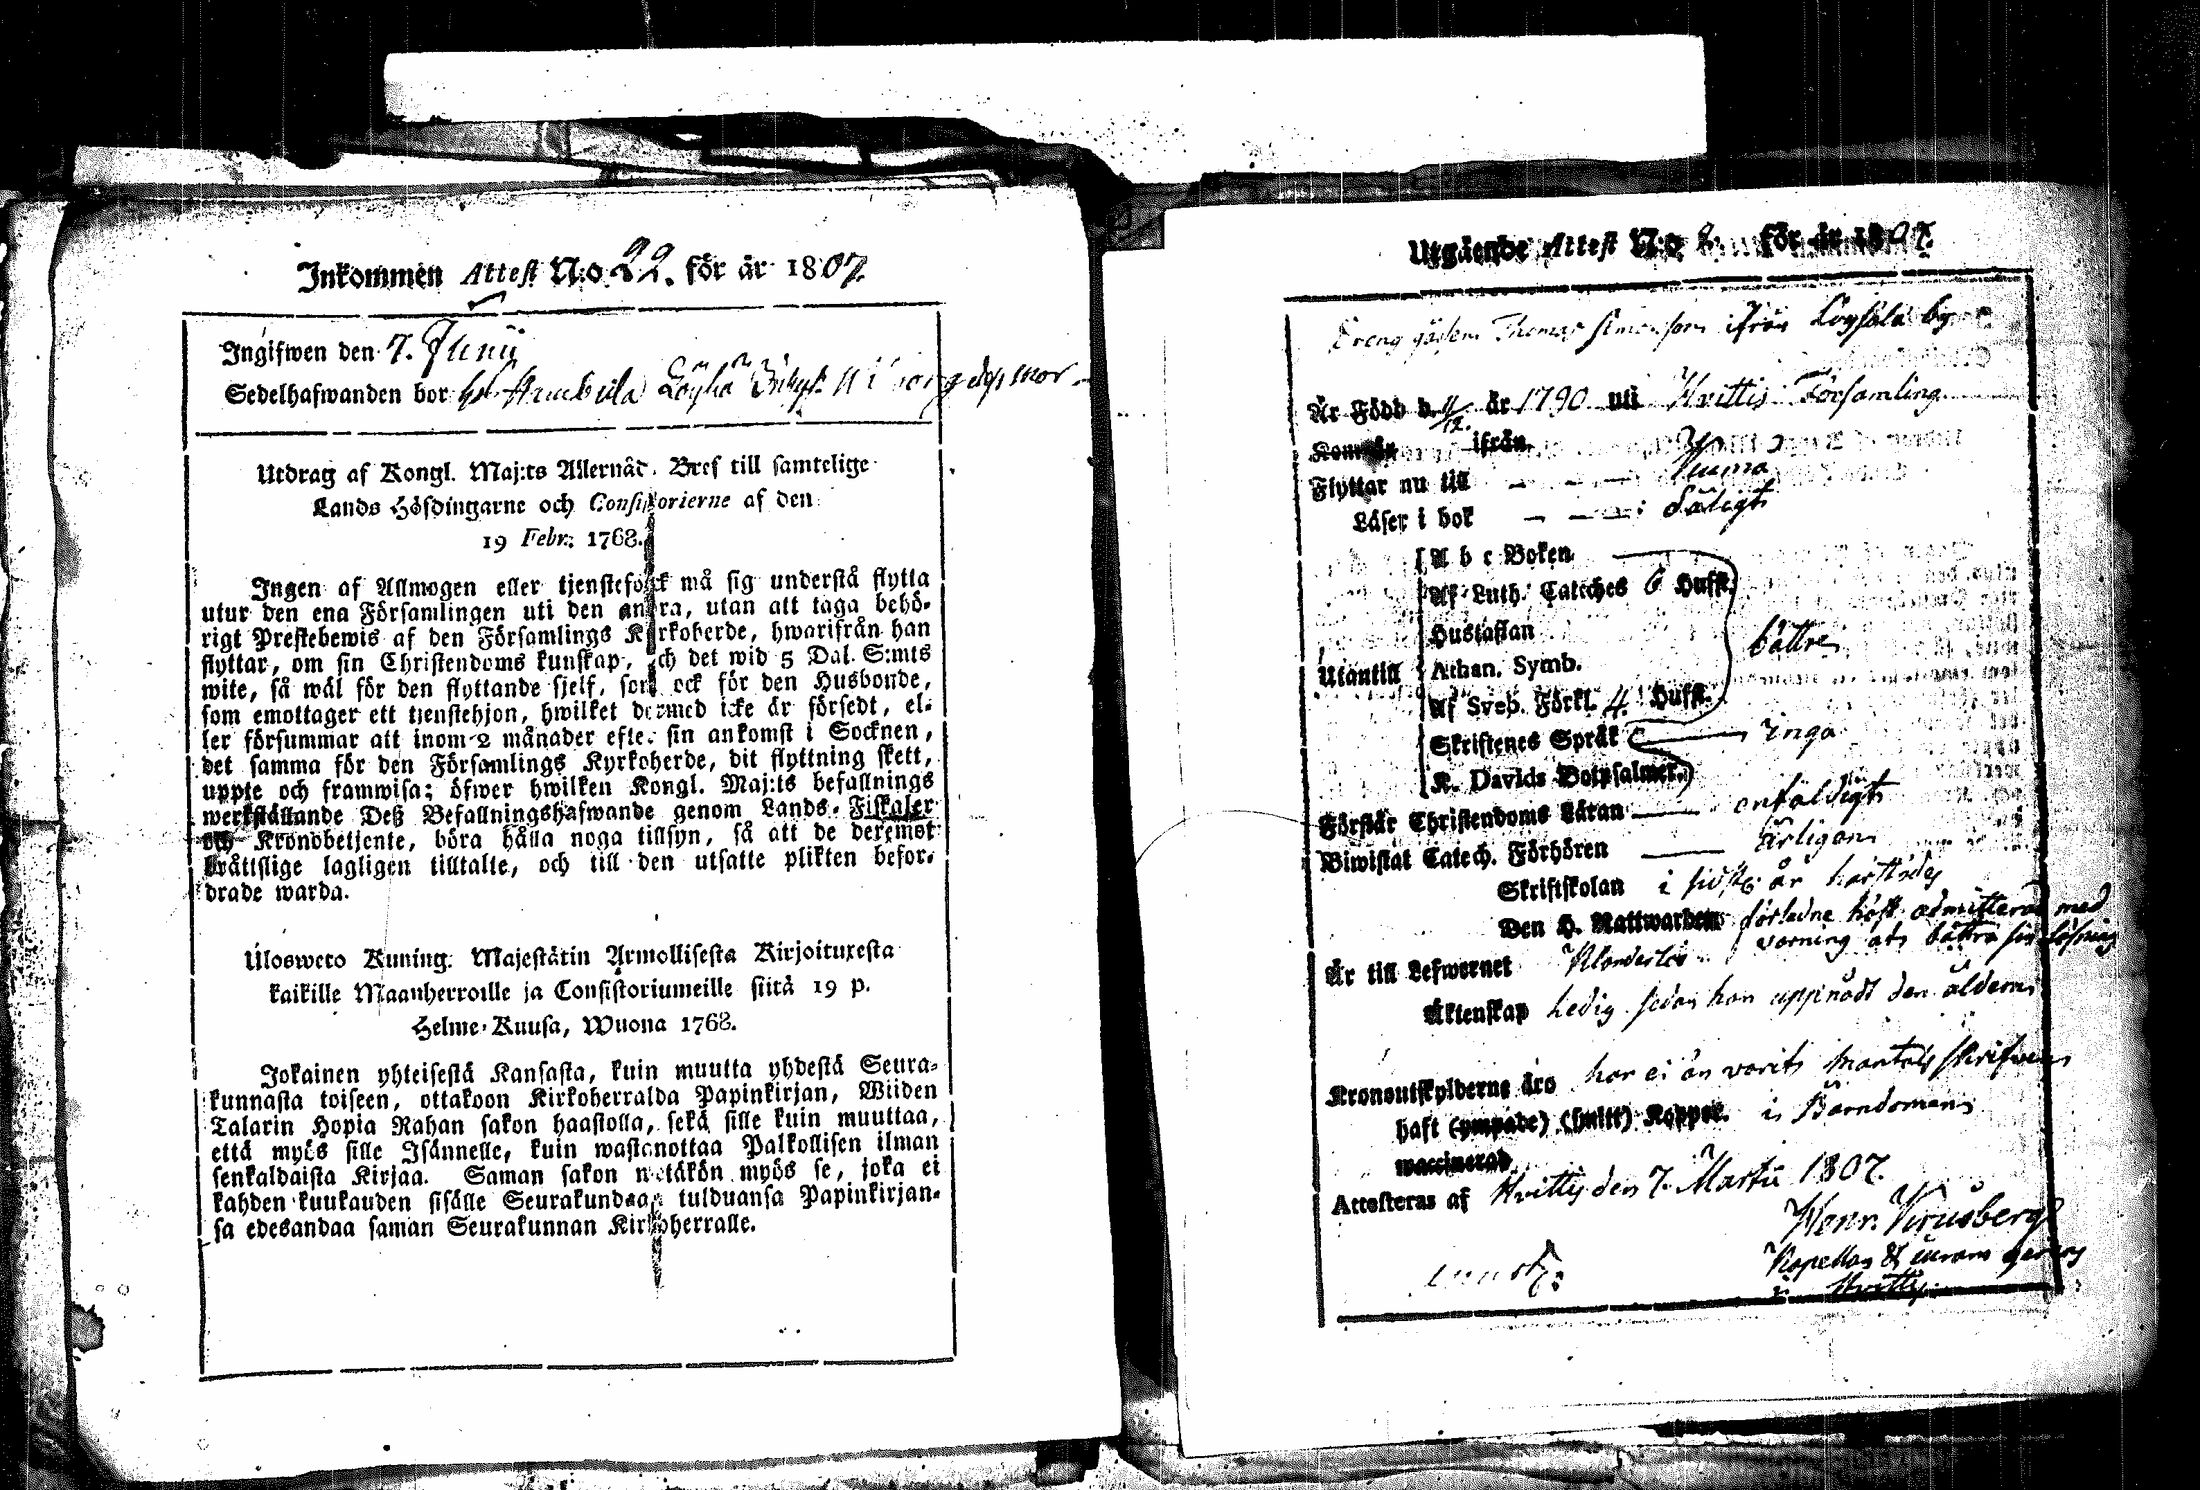 Inkommen Attest N:o 22. för år 1807.
Ingifwen den 7. Junii
Sedelhafwanden bor
Utdrag af Kongl. Maj:ts Allernåd. Bref till samtelige
Lands Höfdingarne och Consistorierne af den
19 Febr. 1768.
Ingen af Allmogen eller tjenstefolck må sig understå flytta
utur den ena Församlingen uti den andra, utan att taga behö-
rigt Prestebewis af den Församlings Kyrkoherde, hwarifrån han
flyttar, om sin Christendoms kunskap, och det wid 5 Dal. S:mts
wite, så wäl för den flyttande sjelf, som ock för den Husbonde,
som emottager ett tienstehjon, hwilket dermed icke är försedt, el-
ler försummar att inom 2 månader efter sin ankomst i Socknen,
det samma för den Församlings Kyrkoherde, dit flyttning skett,
uppte och framwisa; öfwer hwilken Kongl. Maj:ts befallnings
werkställande Deß Befallningshafwande genom Lands-Fiskaler
och Kronobetjente, böra hålla noga tillsyn, så att de deremot
bråttslige lagligen tilltalte, och till den utsatte plikten befor-
drade warda.
Ulosweto Kuning. Majestätin Armollisesta Kirjoituxesta
kaikille Maanherroille ja Consistoriumeille siitä 19 p.
Helme-Kuusa, Wuona 1768.
Jokainen yhteisestä Kansasta, kuin muutta yhdestä Seura-
kunnasta toiseen, ottakoon Kirkoherralda Papinkirjan, Wiiden
Talarin Hopia Rahan sakon haastolla, sekä sille kuin muuttaa,
että myös sille Isännelle, kuin wastanottaa Palkollisen ilman
senkaldaista Kirjaa. Saman sakon wetäkön myös se, joka ei
kahden kuukauden sisälle Seurakundaan tulduansa Papinkirjan-
sa edesandaa saman Seurakunnan Kirkoherralle.
Utgående Attest N:o 2 för år 1807.
Dreng gåssen Thomas Simonsson ifrån Löysälä by
Är Född d. 11/12. år 1790 uti Hvittis Församling
Kom år ifrån
Flyttar nu till — — — Kumo
Läser i bok — — : dåligt
A b c Boken
Af Luth. Catiches 6 Hufst.
Hustaflan
Utantill Athan. Symb. bättre
Af Sveb. Förkl. 4. Hufst.
Skriftenes Språk — inga
K. Davids Botpsalmer.
Förstår Christendoms Läran — enfaldigt
Biwistat Catech. Förhören — årligen
Skriftskolan i sidste år
Den H. Nattwarden förledne höst admitterad med
varning att bättra sin läsning
Är till Lefwernet Klanderlös
Äktenskap ledig sedan han uppnådt den åldern
Kronoutskylderne äro har ei än varit mantals skrifven
haft (ympade) (smitt) Koppor. i Barndomen
waccinerad
Attesteras af Hvittis den 7. Martii 1807.
Henr.
Kapellan
i Hvittis